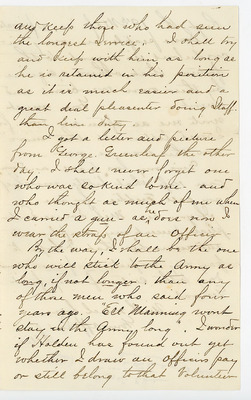 and keep those who had seen
the longest service. I shall try
and keep with him, as long as
he is retained in his position
as it is much easier and a
great deal pleasanter doing Staff
than line duty.
I got a letter and picture
from George Greenleaf the other
day. I shall never forget one
who was so kind to me - and
who thought as much of me when
I carried a gun - as he does now I
wear the straps of an Officer
By the way, I shall be the one
who will stick to the Army as
long, if not longer, than any
of those men who said four
years ago. "Ell Manning wont
stay in the Army long". I wonder
if Holden has found out yet
whether I draw an Officers pay
or still belong to that Volunteer